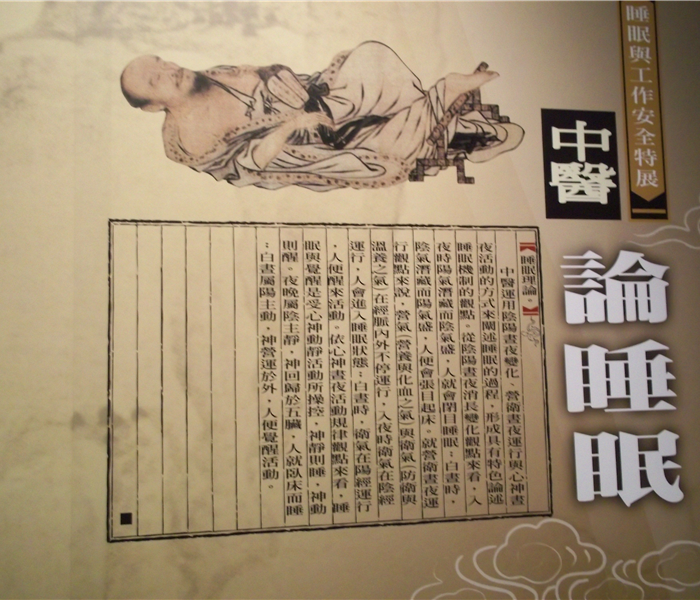 睡眠與工作安全特展
中醫
論睡眠
【睡眠理論。】
中醫運用陰陽晝夜變化、營衛晝夜運行與心神晝
夜活動的方式來闡述睡眠的過程，形成具有特色論述
睡眠機制的觀點。從陰陽晝夜消長變化觀點來看，入
夜時陽氣潛藏而陰氣盛，人就會閉目睡眠；白晝時，
陰氣潛藏而陽氣盛，人便會張目起床。就營衛晝夜運
行觀點來說，營氣(營養與化血之氣)與衛氣(防衛與
溫養之氣)在經脈內外不停運行，入夜時衛氣在陰經
運行，人會進入睡眠狀態；白晝時，衛氣在陽經運行
，人便醒來活動。依心神晝夜活動規律觀點來看，睡
眠與覺醒是受心神動靜活動所操控，神靜則睡，神動
則醒。夜晚屬陰主靜，神回歸於五臟，人就臥床而睡
；白晝屬陽主動，神營運於外，人便覺醒活動。